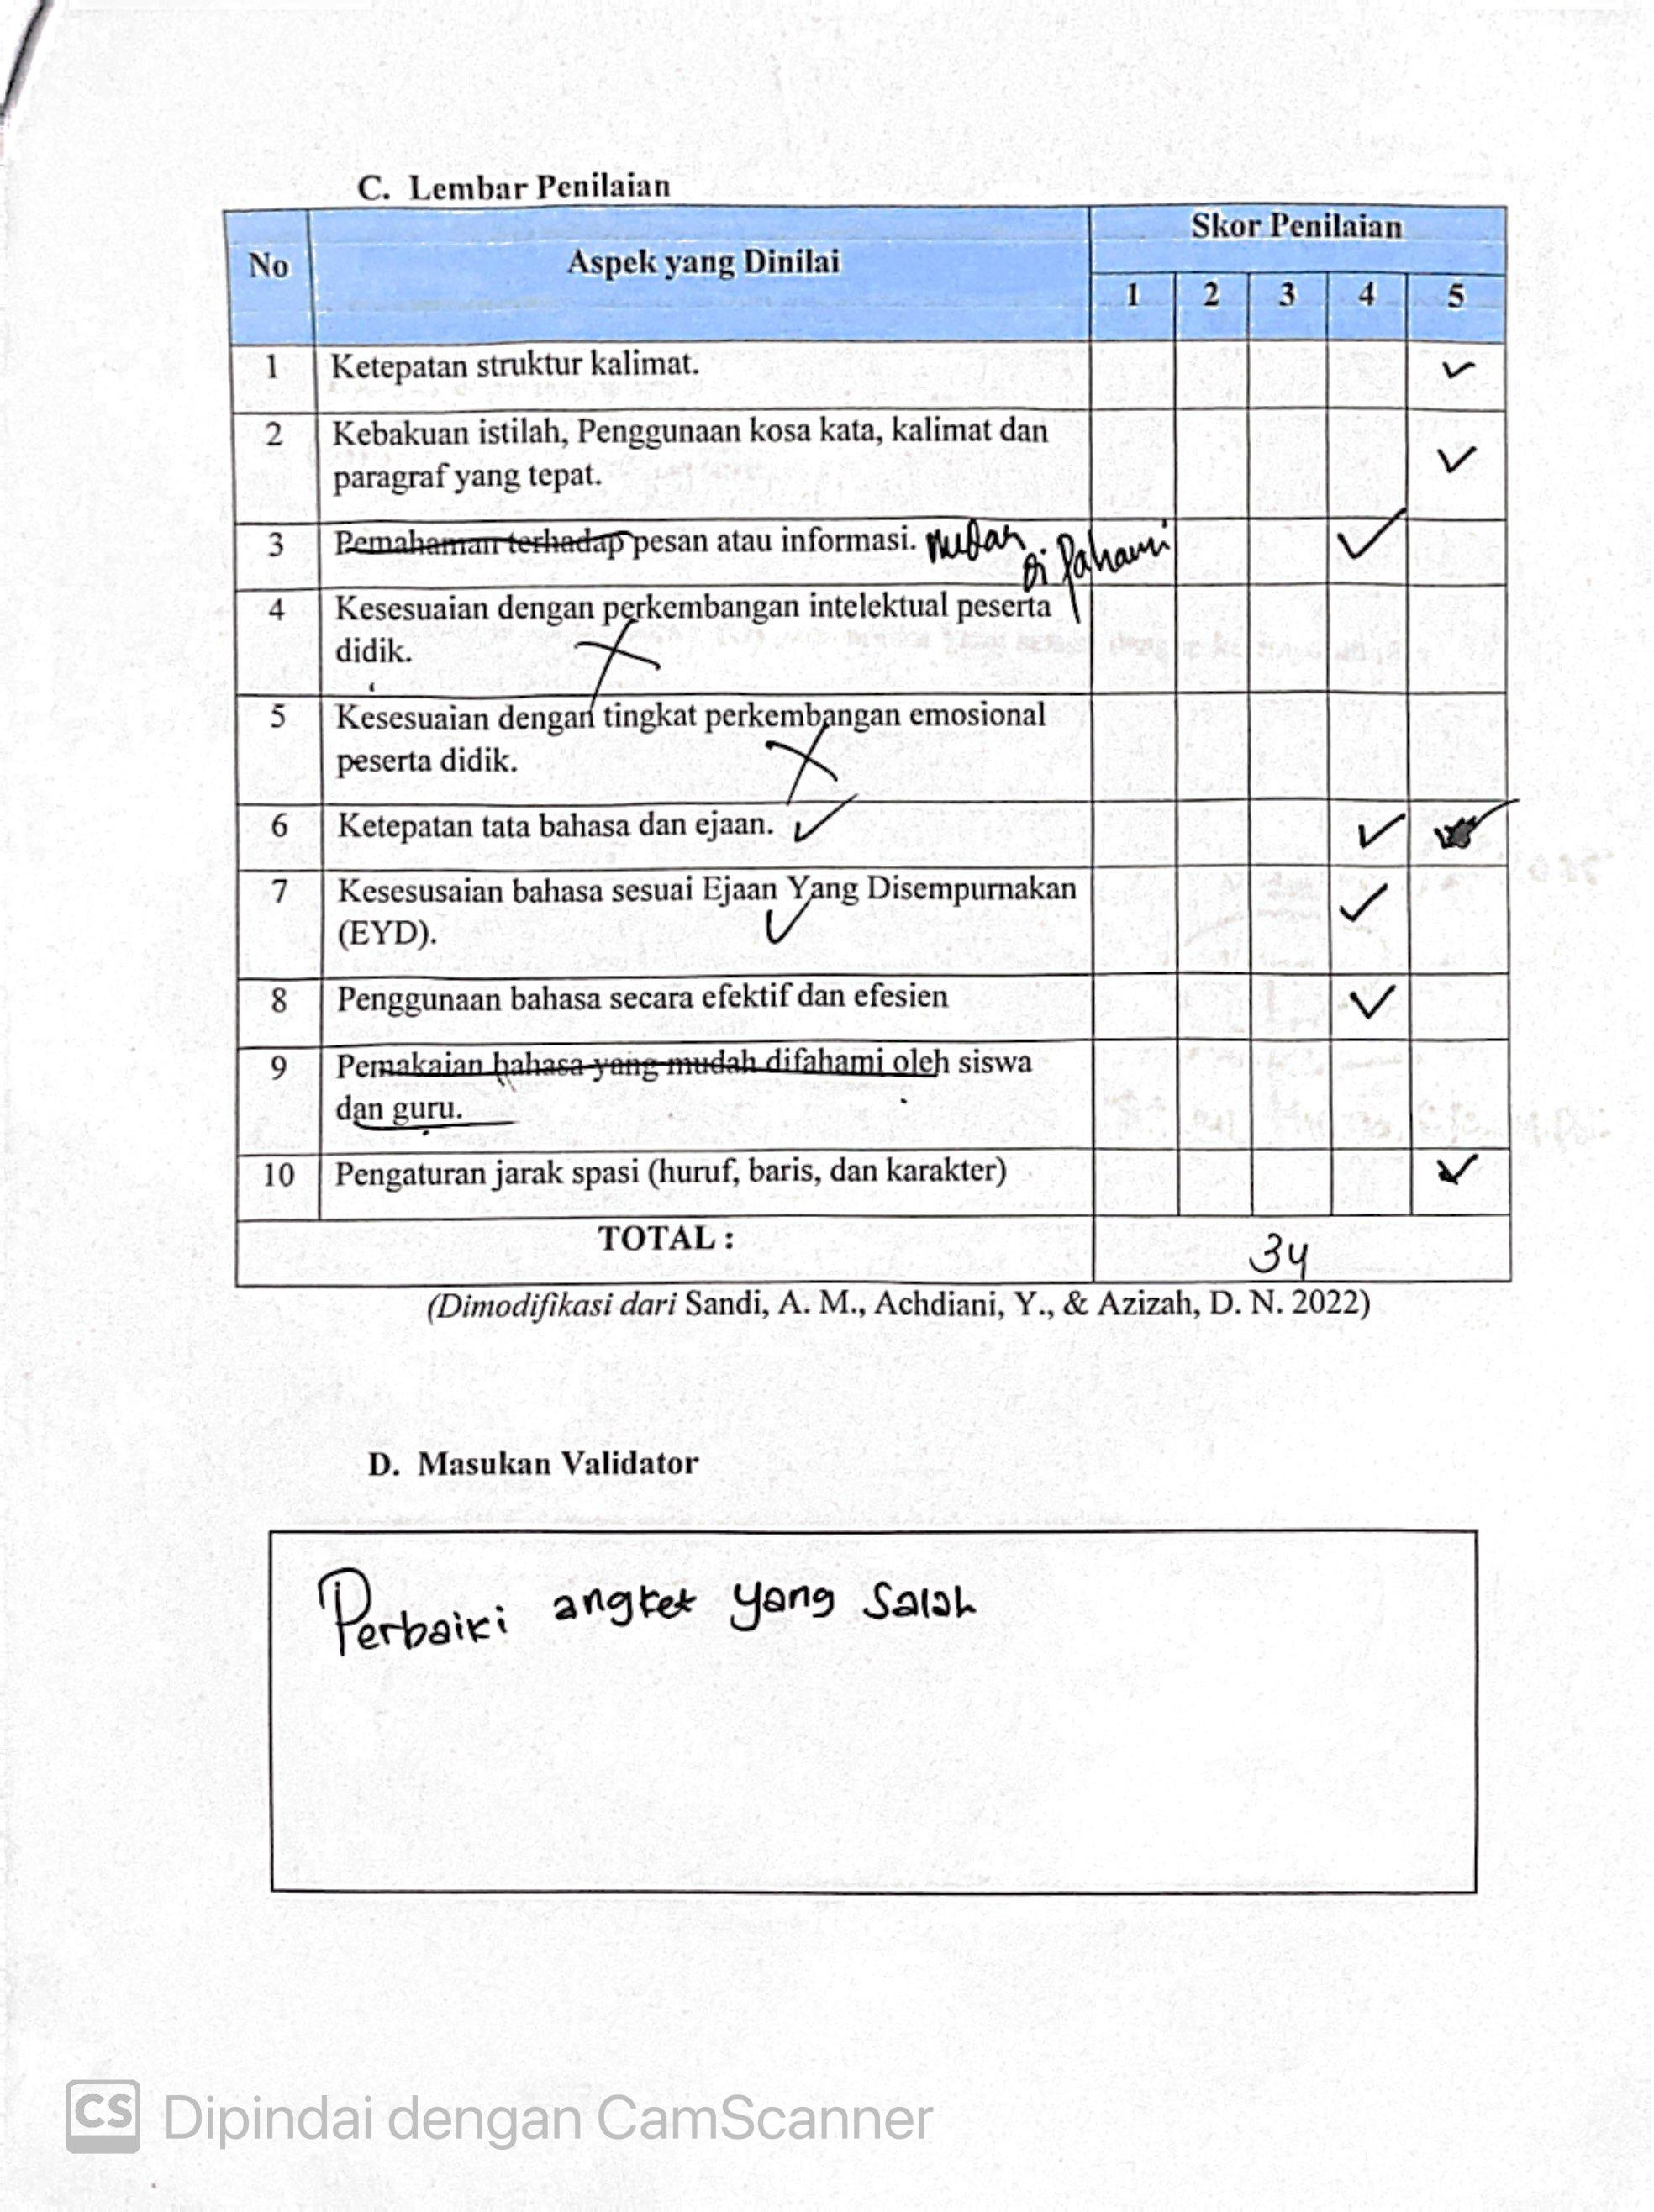 C. Lembar Penilaian
No Aspek yang Dinilai Skor Penilaian
1 2 3 4 5
1 Ketepatan struktur kalimat. ✓
2 Kebakuan istilah, Penggunaan kosa kata, kalimat dan
paragraf yang tepat. ✓
3 Pemahaman terhadap pesan atau informasi. mudah ✓
di fahami
4 Kesesuaian dengan perkembangan intelektual peserta
didik.
5 Kesesuaian dengan tingkat perkembangan emosional
peserta didik.
6 Ketepatan tata bahasa dan ejaan. ✓ ✓
7 Kesesusaian bahasa sesuai Ejaan Yang Disempurnakan ✓
(EYD). ✓
8 Penggunaan bahasa secara efektif dan efesien ✓
9 Pemakaian bahasa yang mudah difahami oleh siswa
dan guru.
10 Pengaturan jarak spasi (huruf, baris, dan karakter) ✓
TOTAL : 34
(Dimodifikasi dari Sandi, A. M., Achdiani, Y., & Azizah, D. N. 2022)
D. Masukan Validator
Perbaiki angket yang salah
CS Dipindai dengan CamScanner